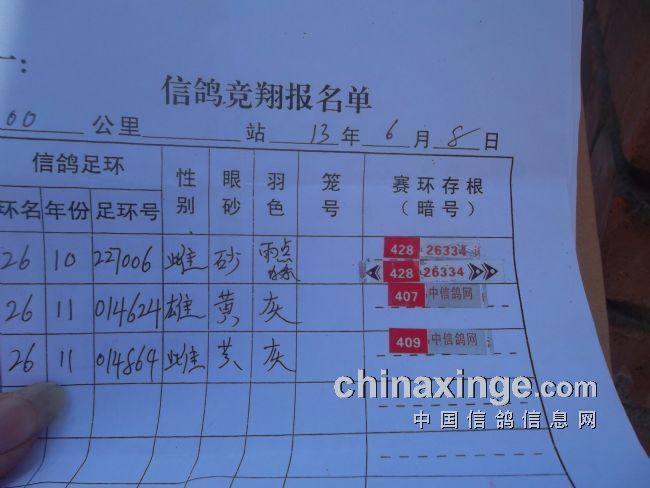 一：
信鸽竞翔报名单
00 公里 站 13 年 6 月 8 日
信鸽足环 性别 眼砂 羽色 笼号 赛环存根（暗号）
环名 年份 足环号
26 10 227006 雌 砂 雨点 428 26334
428 26334
26 11 014624 雄 黄 灰 407 中信鸽网
26 11 014864 雌 黄 灰 409 中信鸽网
chinaxinge.com
中国信鸽信息网